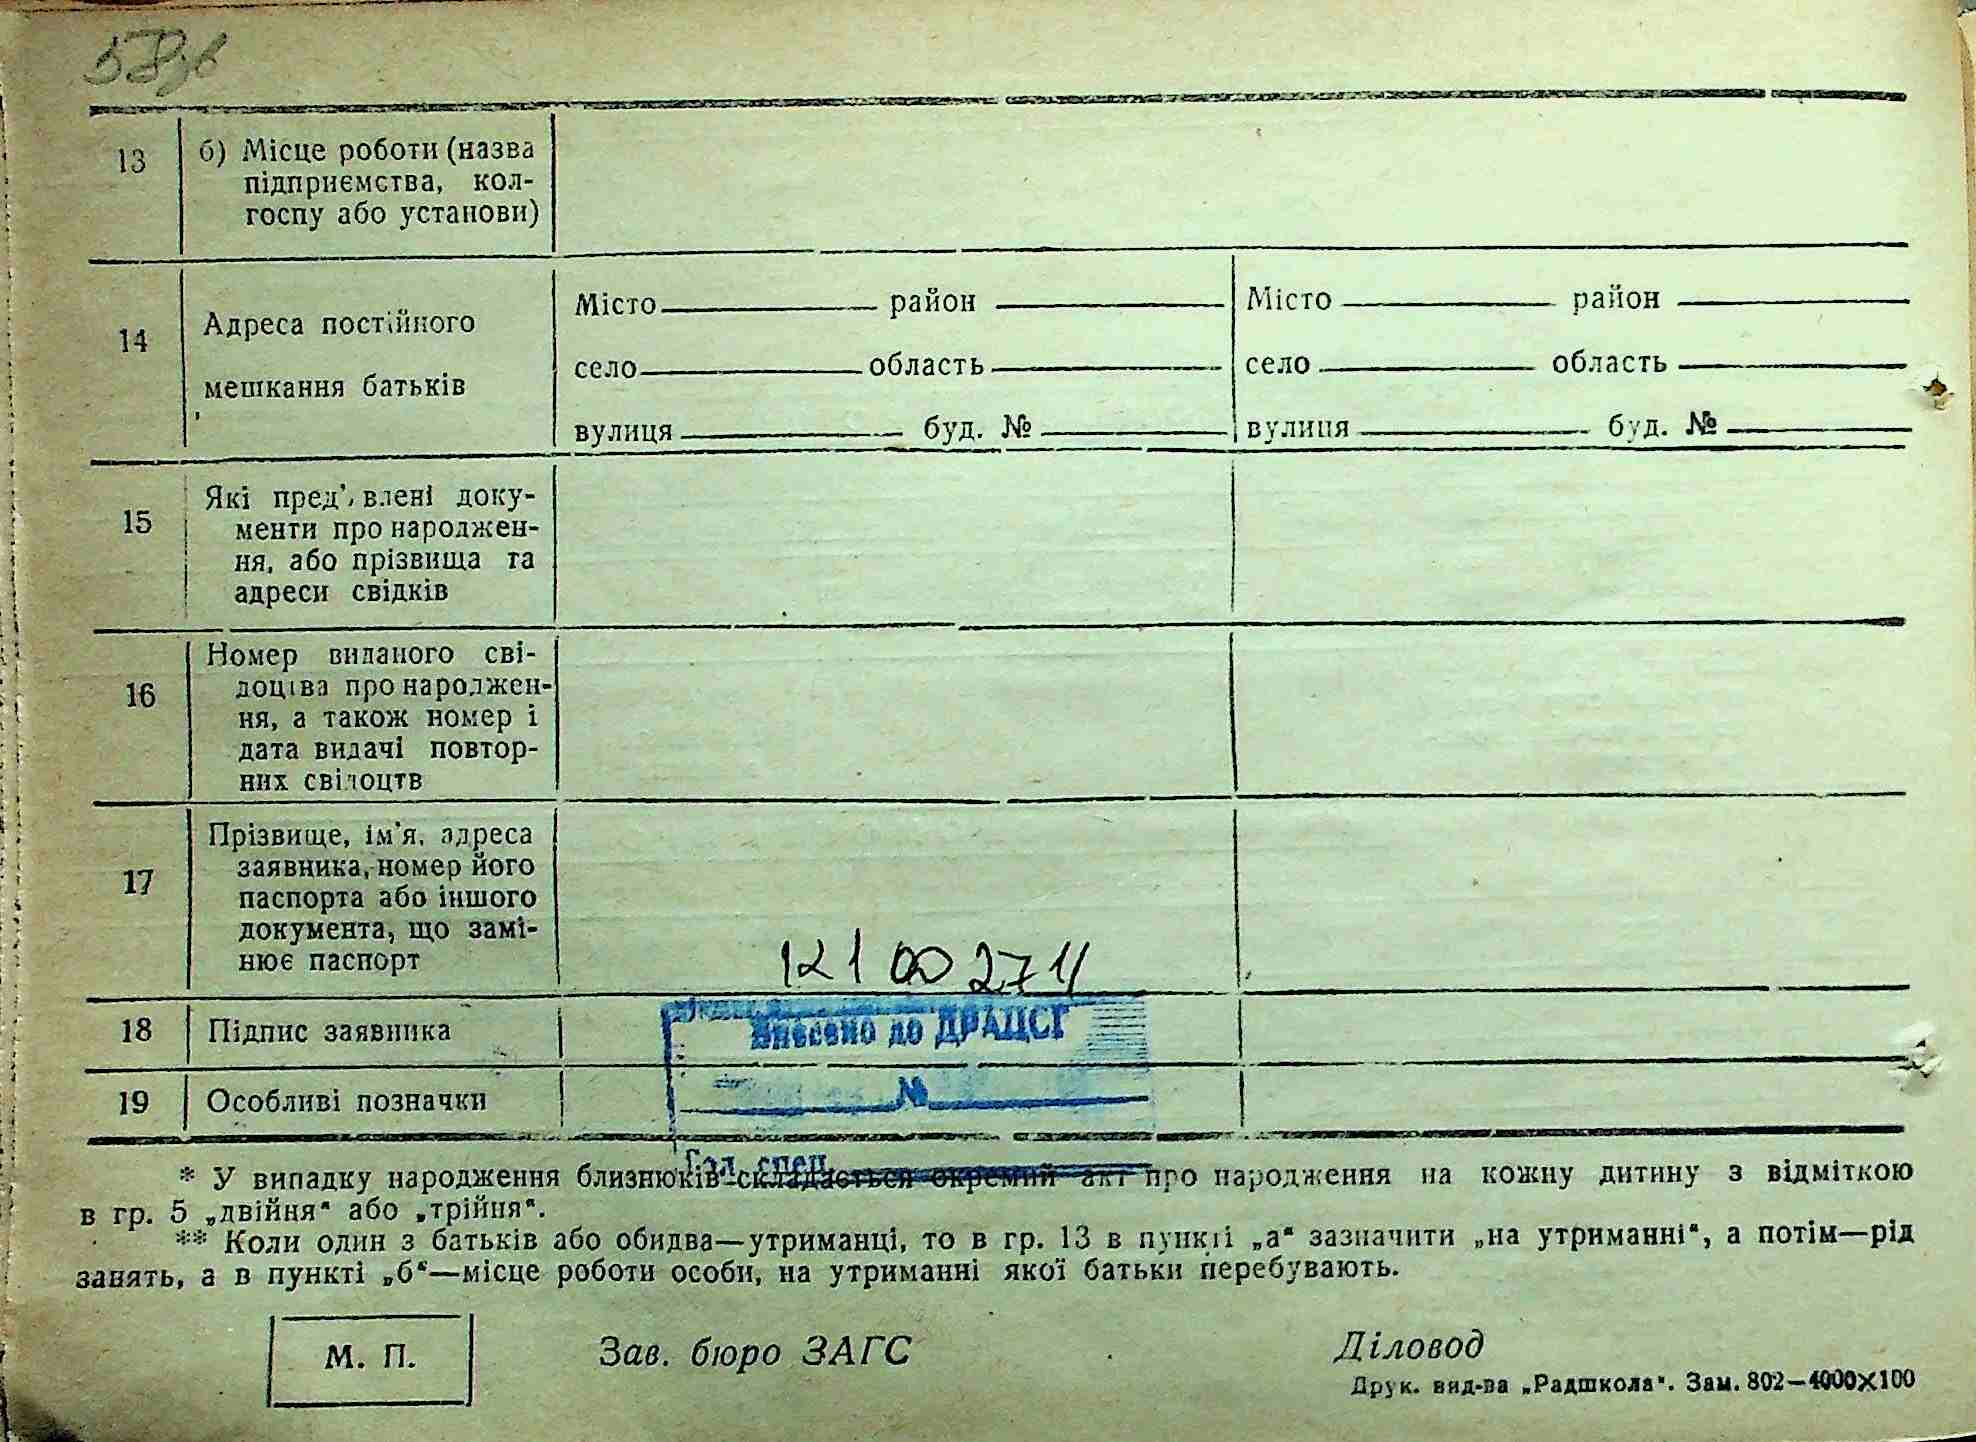 13 б) Місце роботи (назва
підприємства, кол-
госпу або установи)
14 Адреса постійного
мешкання батьків
Місто район Місто район
село область село область
вулиця буд. № вулиця буд. №
15 Які пред’влені доку-
менти про народжен-
ня, або прізвища та
адреси свідків
16 Номер виданого сві-
доцтва про народжен-
ня, а також номер і
дата видачі повтор-
них свідоцтв
17 Прізвище, ім’я, адреса
заявника, номер його
паспорта або іншого
документа, що замі-
нює паспорт
121 00 271
18 Підпис заявника
Внесено до ДРАЦСГ
19 Особливі позначки
№
Гол. спец.
* У випадку народження близнюків складається окремий акт про народження на кожну дитину з відміткою
в гр. 5 „двійня“ або „трійня“.
** Коли один з батьків або обидва—утриманці, то в гр. 13 в пункті „а“ зазначити „на утриманні“, а потім—рід
занять, а в пункті „б“—місце роботи особи, на утриманні якої батьки перебувають.
М. П. Зав. бюро ЗАГС Діловод
Друк. вид-ва „Радшкола“. Зам. 802—4000×100